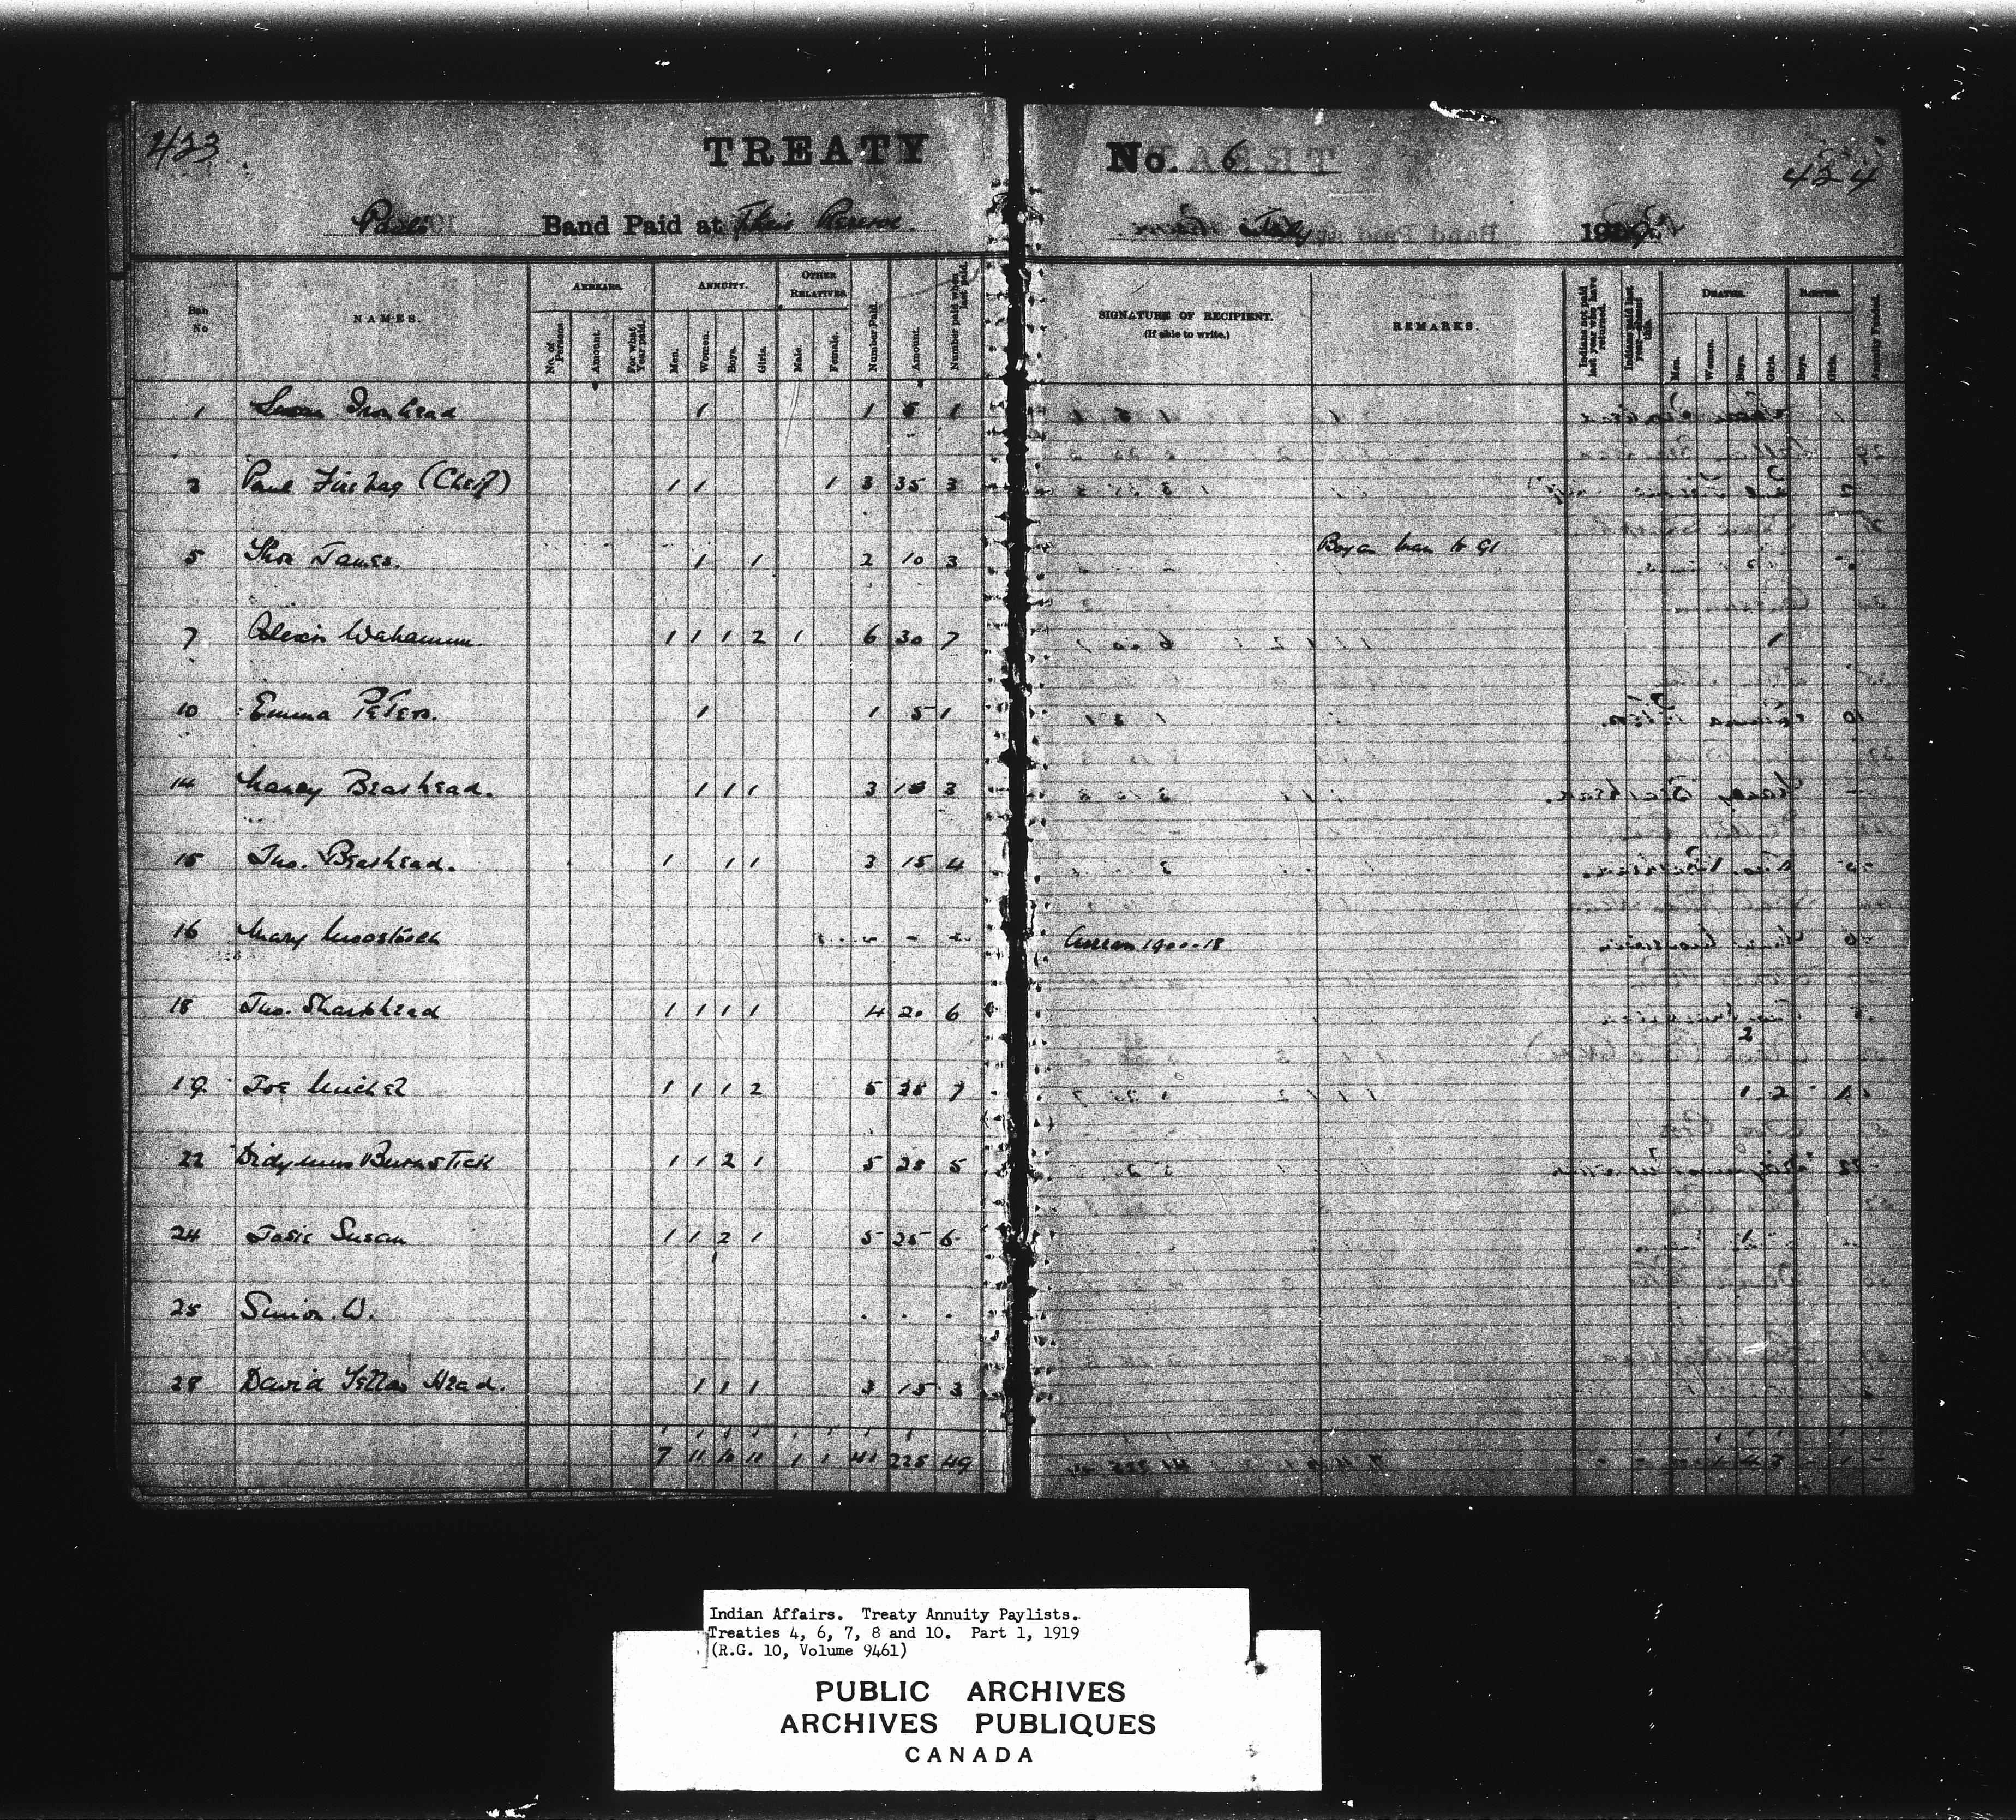 423
TREATY No. 6
424
Pauls Band Paid at Their Reserve. July 1919
Ban No NAMES. ARREARS. ANNUITY. OTHER RELATIVES. Number Paid. Amount. Number paid when last paid.
No. of Persons. Amount. For what Year paid. Men. Women. Boys. Girls. Male. Female.
SIGNATURE OF RECIPIENT. (If able to write.) REMARKS. Indians not paid last year who have returned. Indians paid last year DEATHS. BIRTHS. Annuity Funded.
Men. Women. Boys. Girls. Boys. Girls.
1 Susan Ironhead 1 1 5 1
Paul Firebag (Chief) 1 1 1 3 35 3
5 James. 1 1 2 10 3 Boy a man to 91
7 Alexis 1 1 1 2 1 6 30 7 1
10 Emma Peters. 1 1 5 1
14 Nancy Bearhead. 1 1 1 3 15 3
15 Jno. Bearhead. 1 1 1 3 15 4
16 Mary - - Arrears 1900-18
18 Jno. Sharphead 1 1 1 1 4 20 6 2
19 Joe Michel 1 1 1 2 5 25 7 1 2
22 Didymus Burnstick 1 1 2 1 5 25 5
24 Josie Susan 1 1 2 1 5 25 6 1
25 Simon W.
28 David Yellow Head. 1 1 1 3 15 3
7 11 10 11 1 1 41 225 49
Indian Affairs. Treaty Annuity Paylists.
Treaties 4, 6, 7, 8 and 10. Part 1, 1919
(R.G. 10, Volume 9461)
PUBLIC ARCHIVES
ARCHIVES PUBLIQUES
CANADA